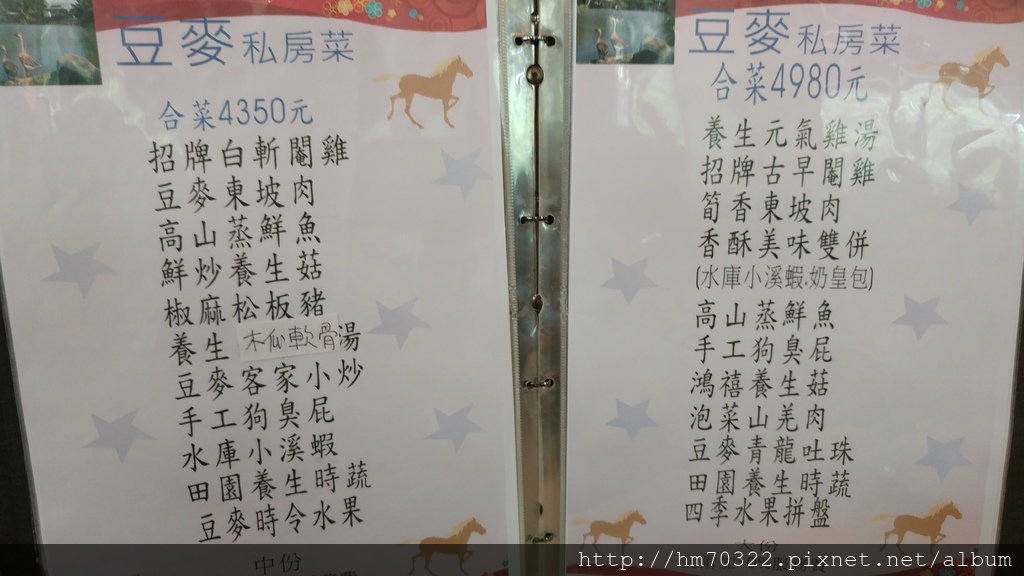 豆麥私房菜
合菜4350元
招牌白斬閹雞
豆麥東坡肉
高山蒸鮮魚
鮮炒養生菇
椒麻松板豬
養生木瓜軟骨湯
豆麥客家小炒
手工狗臭屁
水庫小溪蝦
田園養生時蔬
豆麥時令水果
中份
豆麥私房菜
合菜4980元
養生元氣雞湯
招牌古早閹雞
筍香東坡肉
香酥美味雙併
(水庫小溪蝦.奶皇包)
高山蒸鮮魚
手工狗臭屁
鴻禧養生菇
泡菜山羌肉
豆麥青龍吐珠
田園養生時蔬
四季水果拼盤
http://hm70322.pixnet.net/album